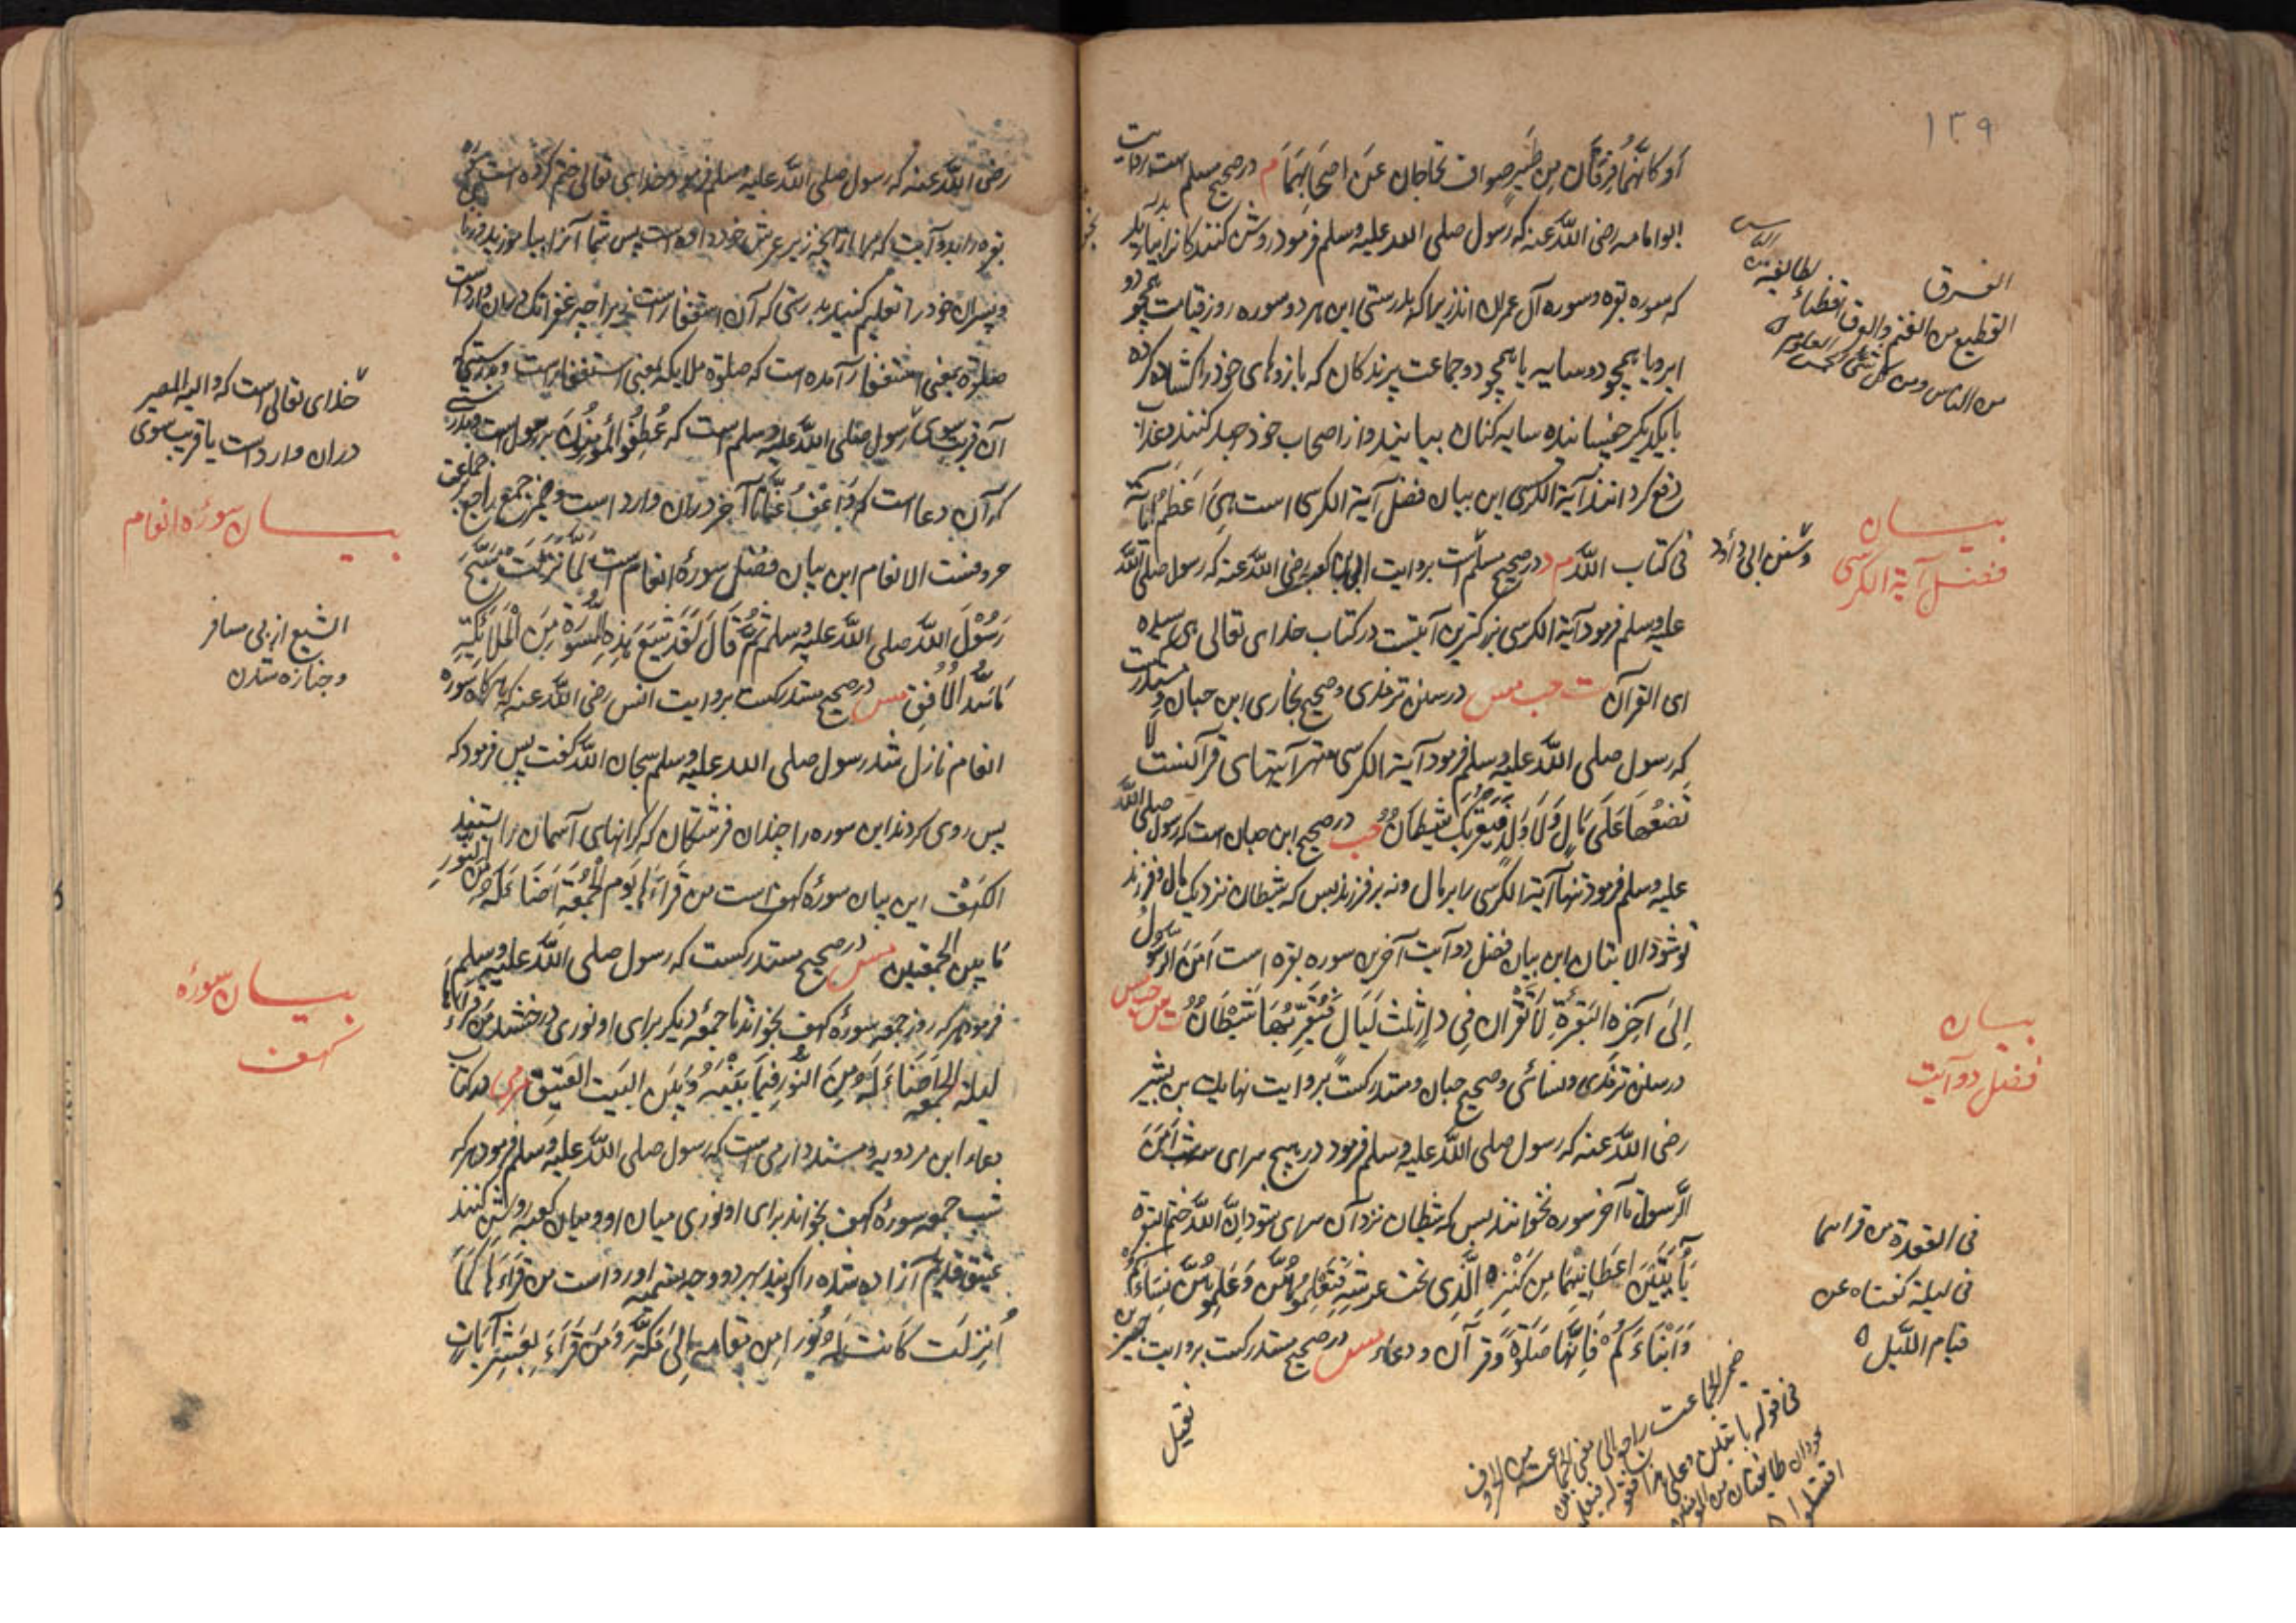 ١٣٩
أو كأنهما فرقان من طير صواف تحاجان عن اصحابهما م در صحیح مسلم است بروایت
ابو امامه رضی الله عنه که رسول صلی الله علیه وسلم فرمود روشن کنندگان را بیاموزید
که سوره بقره و سوره آل عمران اند زیرا که بدرستی این هر دو سوره روز قیامت همچو دو
ابر و یا همچو دو سایه یا همچو دو جماعت پرندگان که بازوهای خود را کشاده کرده
با یکدیگر سایه کنان بیایند و از اصحاب خود جدل کنند و عذاب
دفع گردانند آیة الکرسی این بیان فضل آیة الکرسی است هی اعظم آیة
فی کتاب الله م د در صحیح مسلم است بروایت ابی بن کعب رضی الله عنه که رسول صلی الله
علیه وسلم فرمود آیة الکرسی بزرکترین آیتست در کتاب خدای تعالی هی سیدة
ای القرآن ت حب مس در سنن ترمذی و صحیح بخاری ابن حبان و مستدرکست
که رسول صلی الله علیه وسلم فرمود آیة الکرسی مهتر آیتهای قرآنست لا
تضعها علی مال ولا ولد فیقربک شیطان حب در صحیح ابن حبان است که رسول صلی الله
علیه وسلم فرمود ننهی آیة الکرسی را بر مال و نه بر فرزند پس که شیطان نزدیک مال و فرزند
تو شود الایتان این بیان فضل دو آیت آخرین سوره بقره است آمن الرسول
الی آخره البقرة لا تقرآن فی دار ثلث لیال فیقربها شیطان ت س حب مس
در سنن ترمذی و نسائی و صحیح حبان و مستدرکست بروایت بن بشیر
رضی الله عنه که رسول صلی الله علیه وسلم فرمود در هیچ سرای سه شب آمن
الرسول تا آخر سوره نخوانند پس که شیطان نزد آن سرای شود ان الله ختم البقرة
بآیتین اعطانیهما من کنزه الذی تحت عرشه فتعلموهن وعلموهن نساءکم
وابناءکم فانها صلوة وقرآن ودعاء مس در صحیح مستدرکست بروایت جبیر بن
نفیل
الفرق
القطیع من الغنم
من الناس ومن کل شئ
وسنن ابی داود
بیان
فضل آیة الکرسی
بیان
فضل دو آیت
فی القعدة من قراهما
فی لیلة کفتاه عن
قیام اللیل
ضمیر الجماعت راجع الی معنی الجماعت من الحروف
فی قوله بآیتین
طایفتان من المومنین
اقتتلوا
رضی الله عنه که رسول صلی الله علیه وسلم فرمود خدای تعالی ختم کرده است
بقره را بدو آیت که مرا از گنج زیر عرش خود داده است پس شما آنرا بیاموزید و زنان
و پسران خود را تعلیم کنید بدرستی که آن استغفار است زیرا چه غفرانک در آن وارد است
صلوة بمعنی استغفار آمده است که صلوة ملایکه بمعنی استغفار است و بدرستی که
آن قربت سوی رسول صلی الله علیه وسلم است که عطف والمؤمنون بر رسول است و بدرستی
که آن دعا است که واعف عنا تا آخر در آن وارد است و ضمیر جمع راجع بر جماعت
حروفست الانعام این بیان فضل سورۀ انعام است لما نزلت سبح
رسول الله صلی الله علیه وسلم ثم قال لقد شیع هذه السورة من الملائکة
ما سد الافق مس در صحیح مستدرکست بروایت انس رضی الله عنه که هر گاه سوره
انعام نازل شد رسول صلی الله علیه وسلم سبحان الله گفت پس فرمود که
پس روی کردند این سوره را چندان فرشتگان که کرانهای آسمان را بستند
الکهف این بیان سورۀ کهف است من قراءها یوم الجمعة اضاء له من النور
ما بین الجمعتین مس در صحیح مستدرکست که رسول صلی الله علیه وسلم
فرمود هر که روز جمعه سورۀ کهف بخواند تا جمعه دیگر برای او نوری درخشد من قراءها
لیلة الجمعة اضاء له من النور فیما بینه و بین البیت العتیق مو می در کتاب
دعاء ابن مردویه و مسند دارمی است که رسول صلی الله علیه وسلم فرمود هر که
شب جمعه سورۀ کهف بخواند برای او نوری میان او و میان کعبه روشن کنند
عتیق قدیم آزاده شده را گویند بهر دو وجه تسمیه او رواست من قراءها کما
انزلت کانت له نورا من مقامه الی مکة ومن قراء بعشر آیات
خدای تعالی است که والیه المصیر
در آن وارد است یا قربت سوی
بیان سورۀ انعام
التشییع از پی مسافر
و جنازه شدن
بیان سورۀ
کهف